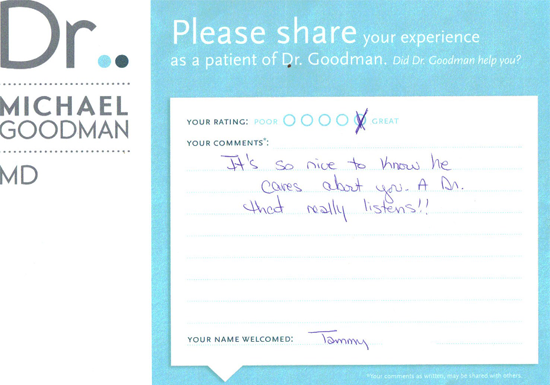 Dr..
MICHAEL
GOODMAN
MD
Please share your experience
as a patient of Dr. Goodman. Did Dr. Goodman help you?
YOUR RATING: POOR GREAT
YOUR COMMENTS*:
It's so nice to know he
cares about you. A Dr.
that really listens!!
YOUR NAME WELCOMED: Tammy
*Your comments as written, may be shared with others.